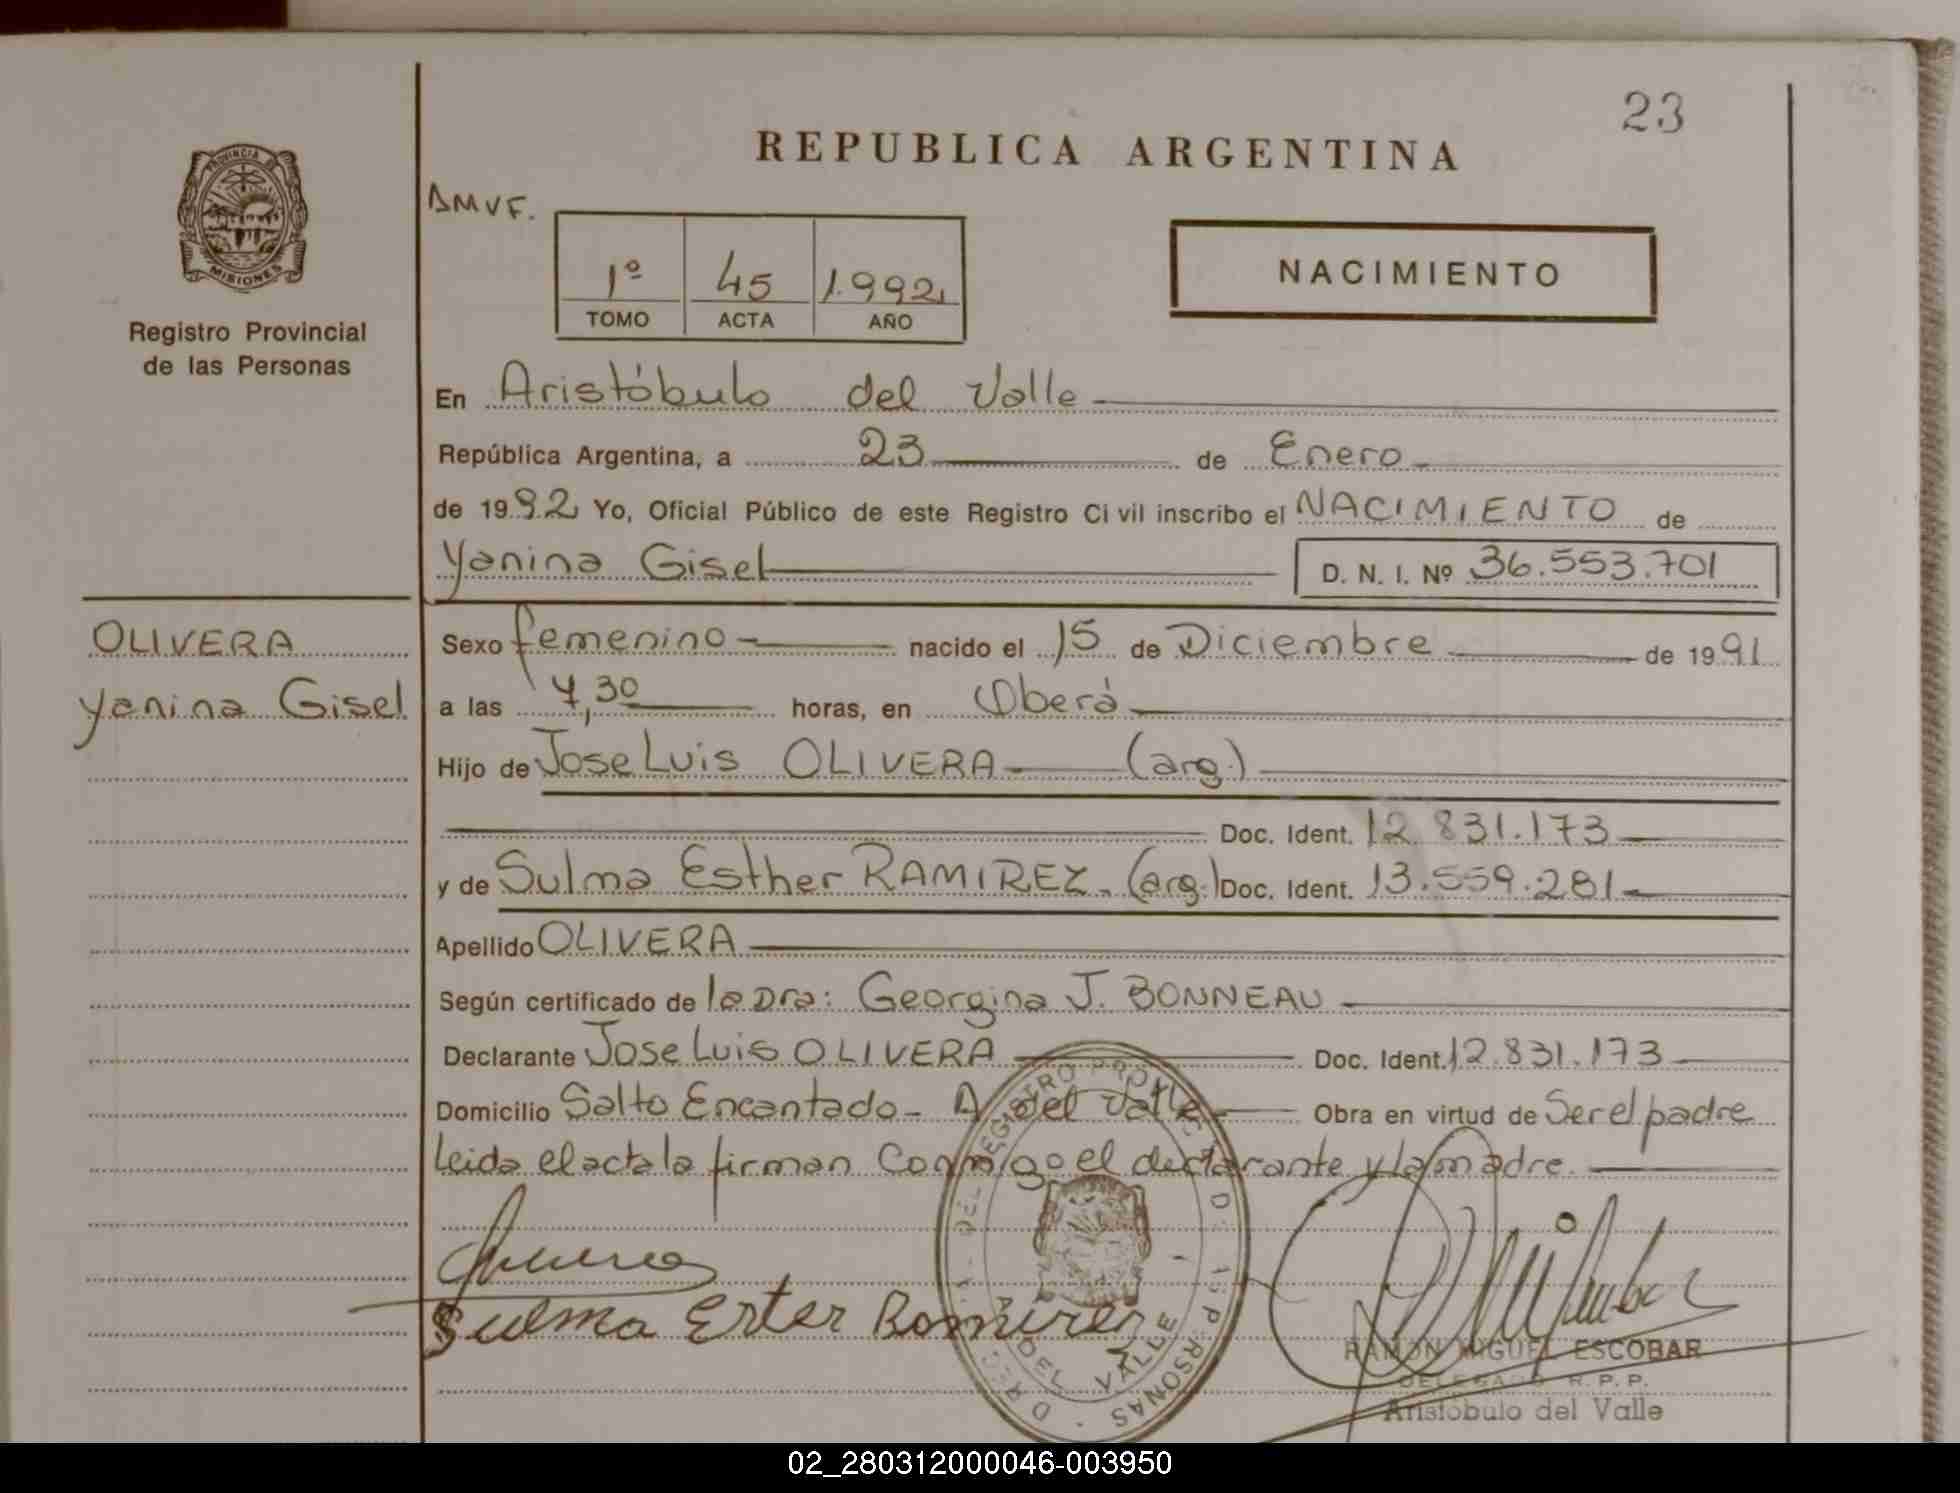 23
REPUBLICA ARGENTINA
PROVINCIA DE
MISIONES
Registro Provincial
de las Personas
AMVF.
1º 45 1.992
TOMO ACTA AÑO
NACIMIENTO
En Aristóbulo del Valle
República Argentina, a 23 de Enero
de 1992 Yo, Oficial Público de este Registro Civil inscribo el NACIMIENTO de
Yanina Gisel D. N. I. Nº 36.553.701
OLIVERA
Yanina Gisel
Sexo femenino nacido el 15 de Diciembre de 1991
a las 7,30 horas, en Oberá
Hijo de Jose Luis OLIVERA (arg.)
Doc. Ident. 12.831.173
y de Sulma Esther RAMIREZ. (arg.) Doc. Ident. 13.559.281
Apellido OLIVERA
Según certificado de la Dra: Georgina J. BONNEAU
Declarante Jose Luis OLIVERA Doc. Ident. 12.831.173
Domicilio Salto Encantado - A del Valle Obra en virtud de Ser el padre
Leida el acta la firman Conmigo el declarante y la madre.
Sulma Ester Romirez
RAMON MIGUEL ESCOBAR
DELEGADO R.P.P.
Aristóbulo del Valle
02_280312000046-003950